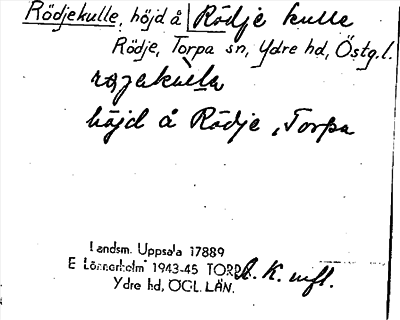 Rödjekulle, höjd å Rödje kulle
Rödje, Torpa sn, Ydre hd, Östg.l.
höjd å Rödje, Torpa
Landsm. Uppsala 17889
E Lönnerholm 1943-45 TORPA
Ydre hd, ÖGL. LÄN.